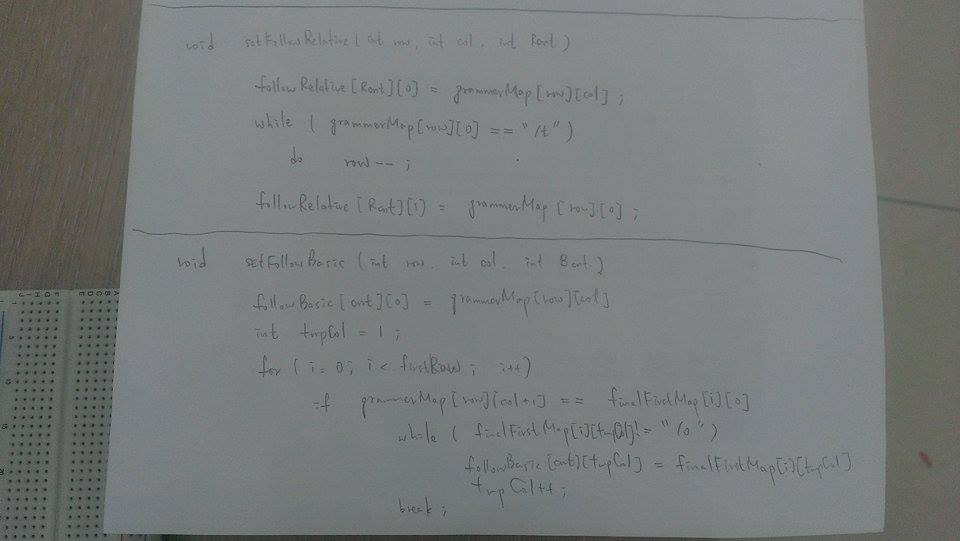 void setFollowRelative ( int row, int col, int Rcnt )
followRelative [Rcnt][0] = grammerMap[row][col] ;
while ( grammerMap[row][0] == "/t" )
do row-- ;
followRelative [Rcnt][1] = grammerMap [row][0] ;
void setFollowBasic ( int row, int col, int Bcnt )
followBasic [cnt][0] = grammerMap[row][col]
int tmpCol = 1 ;
for ( i = 0 ; i < firstRow ; i++ )
if grammerMap[row][col+1] == finalFirstMap[i][0]
while ( finalFirstMap[i][tmpCol] != "/0" )
followBasic [cnt][tmpCol] = finalFirstMap[i][tmpCol]
tmpCol++ ;
break ;